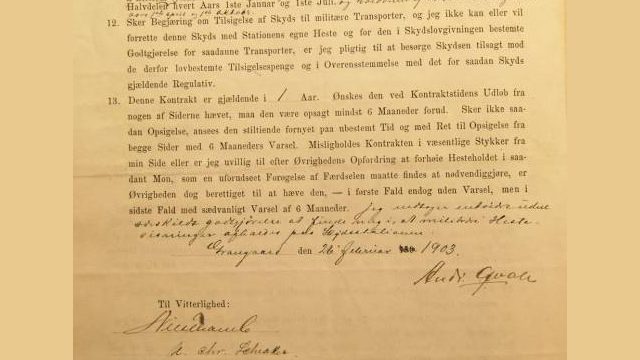 Halvdelen hvert Aars 1ste Januar og 1ste Juli.
12. Sker Begjæring om Tilsigelse af Skyds til militære Transporter, og jeg ikke kan eller vil
forrette denne Skyds med Stationens egne Heste og for den i Skydslovgivningen bestemte
Godtgjørelse for saadanne Transporter, er jeg pligtig til at besørge Skydsen tilsagt mod
de derfor lovbestemte Tilsigelsespenge og i Overensstemmelse med det for saadan Skyds
gjældende Regulativ.
13. Denne Kontrakt er gjældende i 1 Aar. Ønskes den ved Kontraktstidens Udløb fra
nogen af Siderne hævet, maa den være opsagt mindst 6 Maaneder forud. Sker ikke saa-
dan Opsigelse, ansees den stiltiende fornyet paa ubestemt Tid og med Ret til Opsigelse fra
begge Sider med 6 Maaneders Varsel. Misligholdes Kontrakten i væsentlige Stykker fra
min Side eller er jeg uvillig til efter Øvrighedens Opfordring at forhøie Hesteholdet i saa-
dant Mon, som en uforudseet Forøgelse af Færdselen maatte findes at nødvendiggjøre, er
Øvrigheden dog berettiget til at hæve den, — i første Fald endog uden Varsel, men i
sidste Fald med sædvanligt Varsel af 6 Maaneder. jeg
godtgjørelse at finde mig i, at militære Heste-
paa Skydsstationen
den 26 Februar 1903.
Andr.
Til Vitterlighed:
A. Chr.